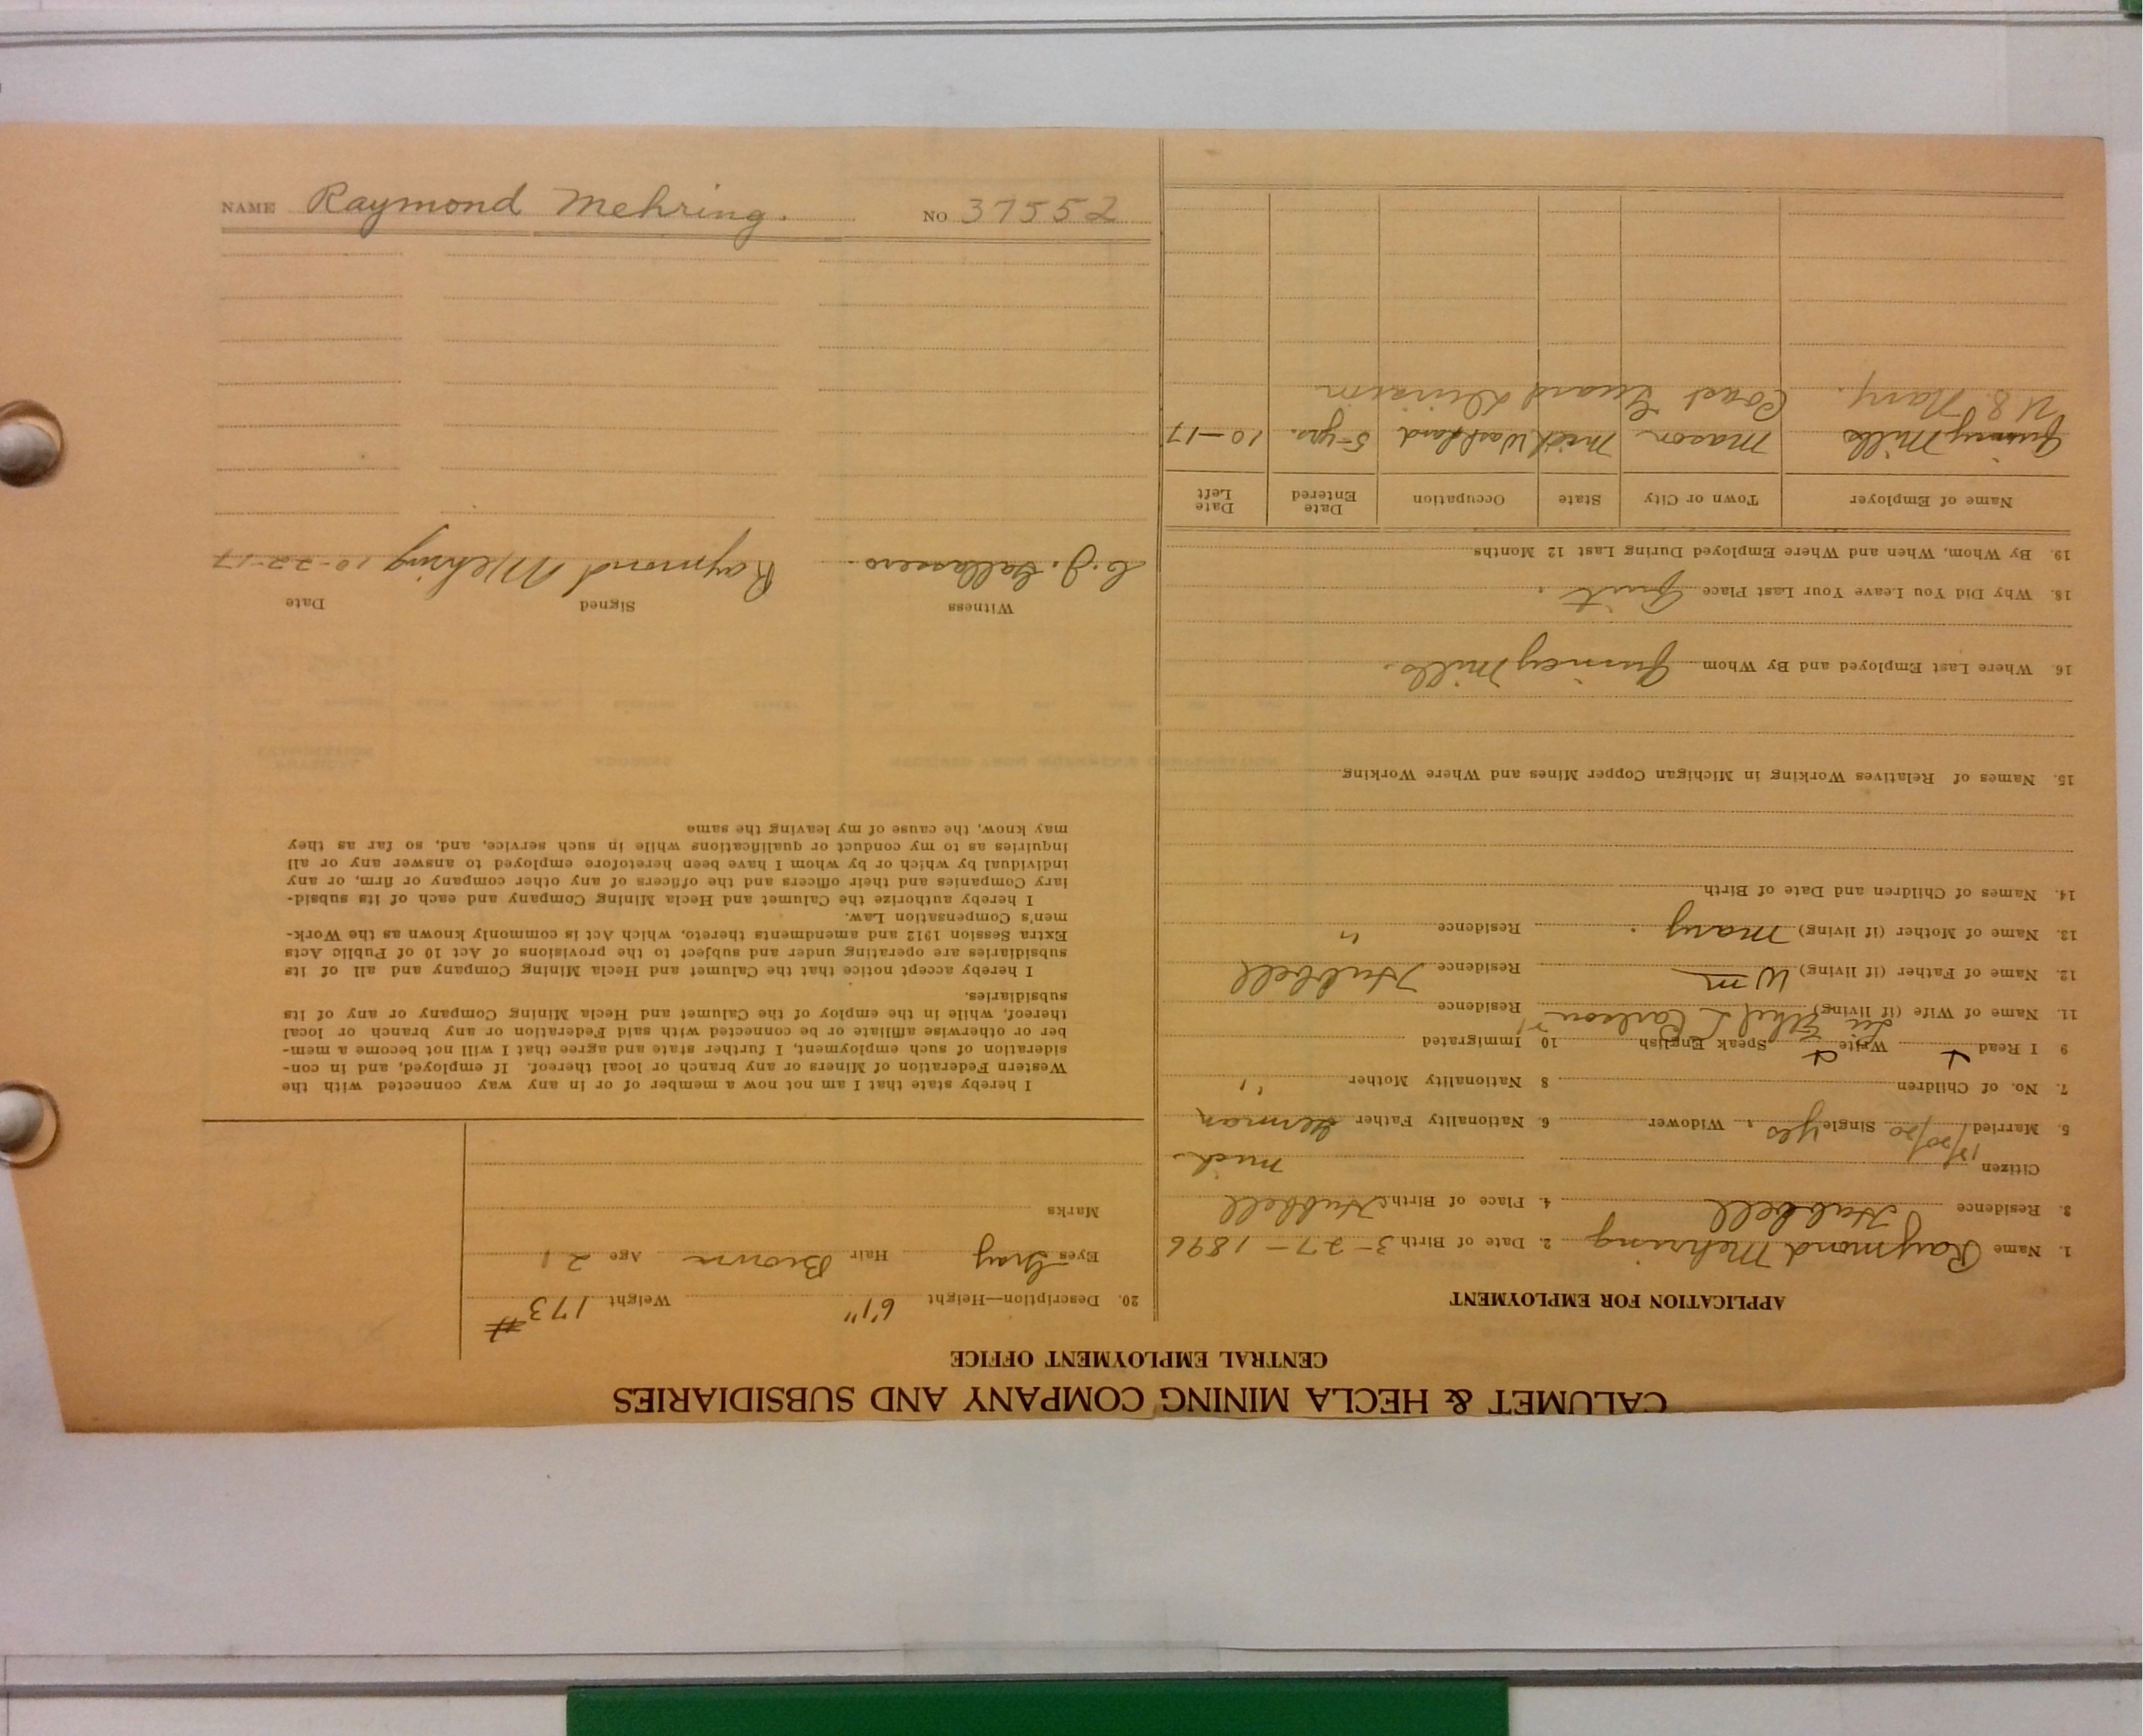 CALUMET & HECLA MINING COMPANY AND SUBSIDIARIES
CENTRAL EMPLOYMENT OFFICE
APPLICATION FOR EMPLOYMENT
1. Name Raymond Mehring 2. Date of Birth 3-27-1896
3. Residence Hubbell 4. Place of Birth Hubbell
Citizen Mich
5. Married 11/20/20 Single yes Widower 6. Nationality Father German
7. No. of Children 8 Nationality Mother "
9 I Read Write Speak English 10 Immigrated
11. Name of Wife (if living) Ethel L Carlson Residence
12. Name of Father (if living) Wm Residence Hubbell
13. Name of Mother (if living) Mary Residence "
14. Names of Children and Date of Birth
15. Names of Relatives Working in Michigan Copper Mines and Where Working
16. Where Last Employed and By Whom Quincy Mills.
18. Why Did You Leave Your Last Place Quit.
19. By Whom, When and Where Employed During Last 12 Months
Name of Employer Town or City State Occupation Date Entered Date Left
Quincy Mills Mason Mich Wash hand 5-yrs. 10-17
U.S. Navy. Coast Guard Division
20. Description—Height 6'1" Weight 173 #
Eyes Gray Hair Brown Age 21
Marks
I hereby state that I am not now a member of or in any way connected with the
Western Federation of Miners or any branch or local thereof. If employed, and in con-
sideration of such employment, I further state and agree that I will not become a mem-
ber or otherwise affiliate or be connected with said Federation or any branch or local
thereof, while in the employ of the Calumet and Hecla Mining Company or any of its
subsidiaries.
I hereby accept notice that the Calumet and Hecla Mining Company and all of its
subsidiaries are operating under and subject to the provisions of Act 10 of Public Acts
Extra Session 1912 and amendments thereto, which Act is commonly known as the Work-
men's Compensation Law.
I hereby authorize the Calumet and Hecla Mining Company and each of its subsid-
iary Companies and their officers and the officers of any other company or firm, or any
individual by which or by whom I have been heretofore employed to answer any or all
inquiries as to my conduct or qualifications while in such service, and, so far as they
may know, the cause of my leaving the same
Witness Signed Date
C.J. Gallasero Raymond Mehring 10-22-17
NAME Raymond Mehring. NO 37552